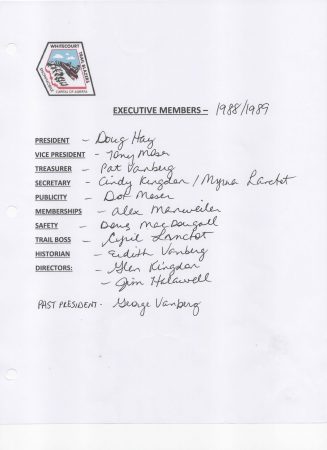 WHITECOURT
TRAIL BLAZERS
SNOWMOBILE
CAPITAL OF ALBERTA
EXECUTIVE MEMBERS – 1988/1989
PRESIDENT - Doug Hay
VICE PRESIDENT - Tony Moser
TREASURER - Pat Vanberg
SECRETARY - Cindy Kingdon / Myrna Lanctot
PUBLICITY - Dot Moser
MEMBERSHIPS - Alex Manweiler
SAFETY - Doug MacDougall
TRAIL BOSS - Cyril Lanctot
HISTORIAN - Edith Vanberg
DIRECTORS: - Glen Kingdon
- Jim Halawell
PAST PRESIDENT - George Vanberg